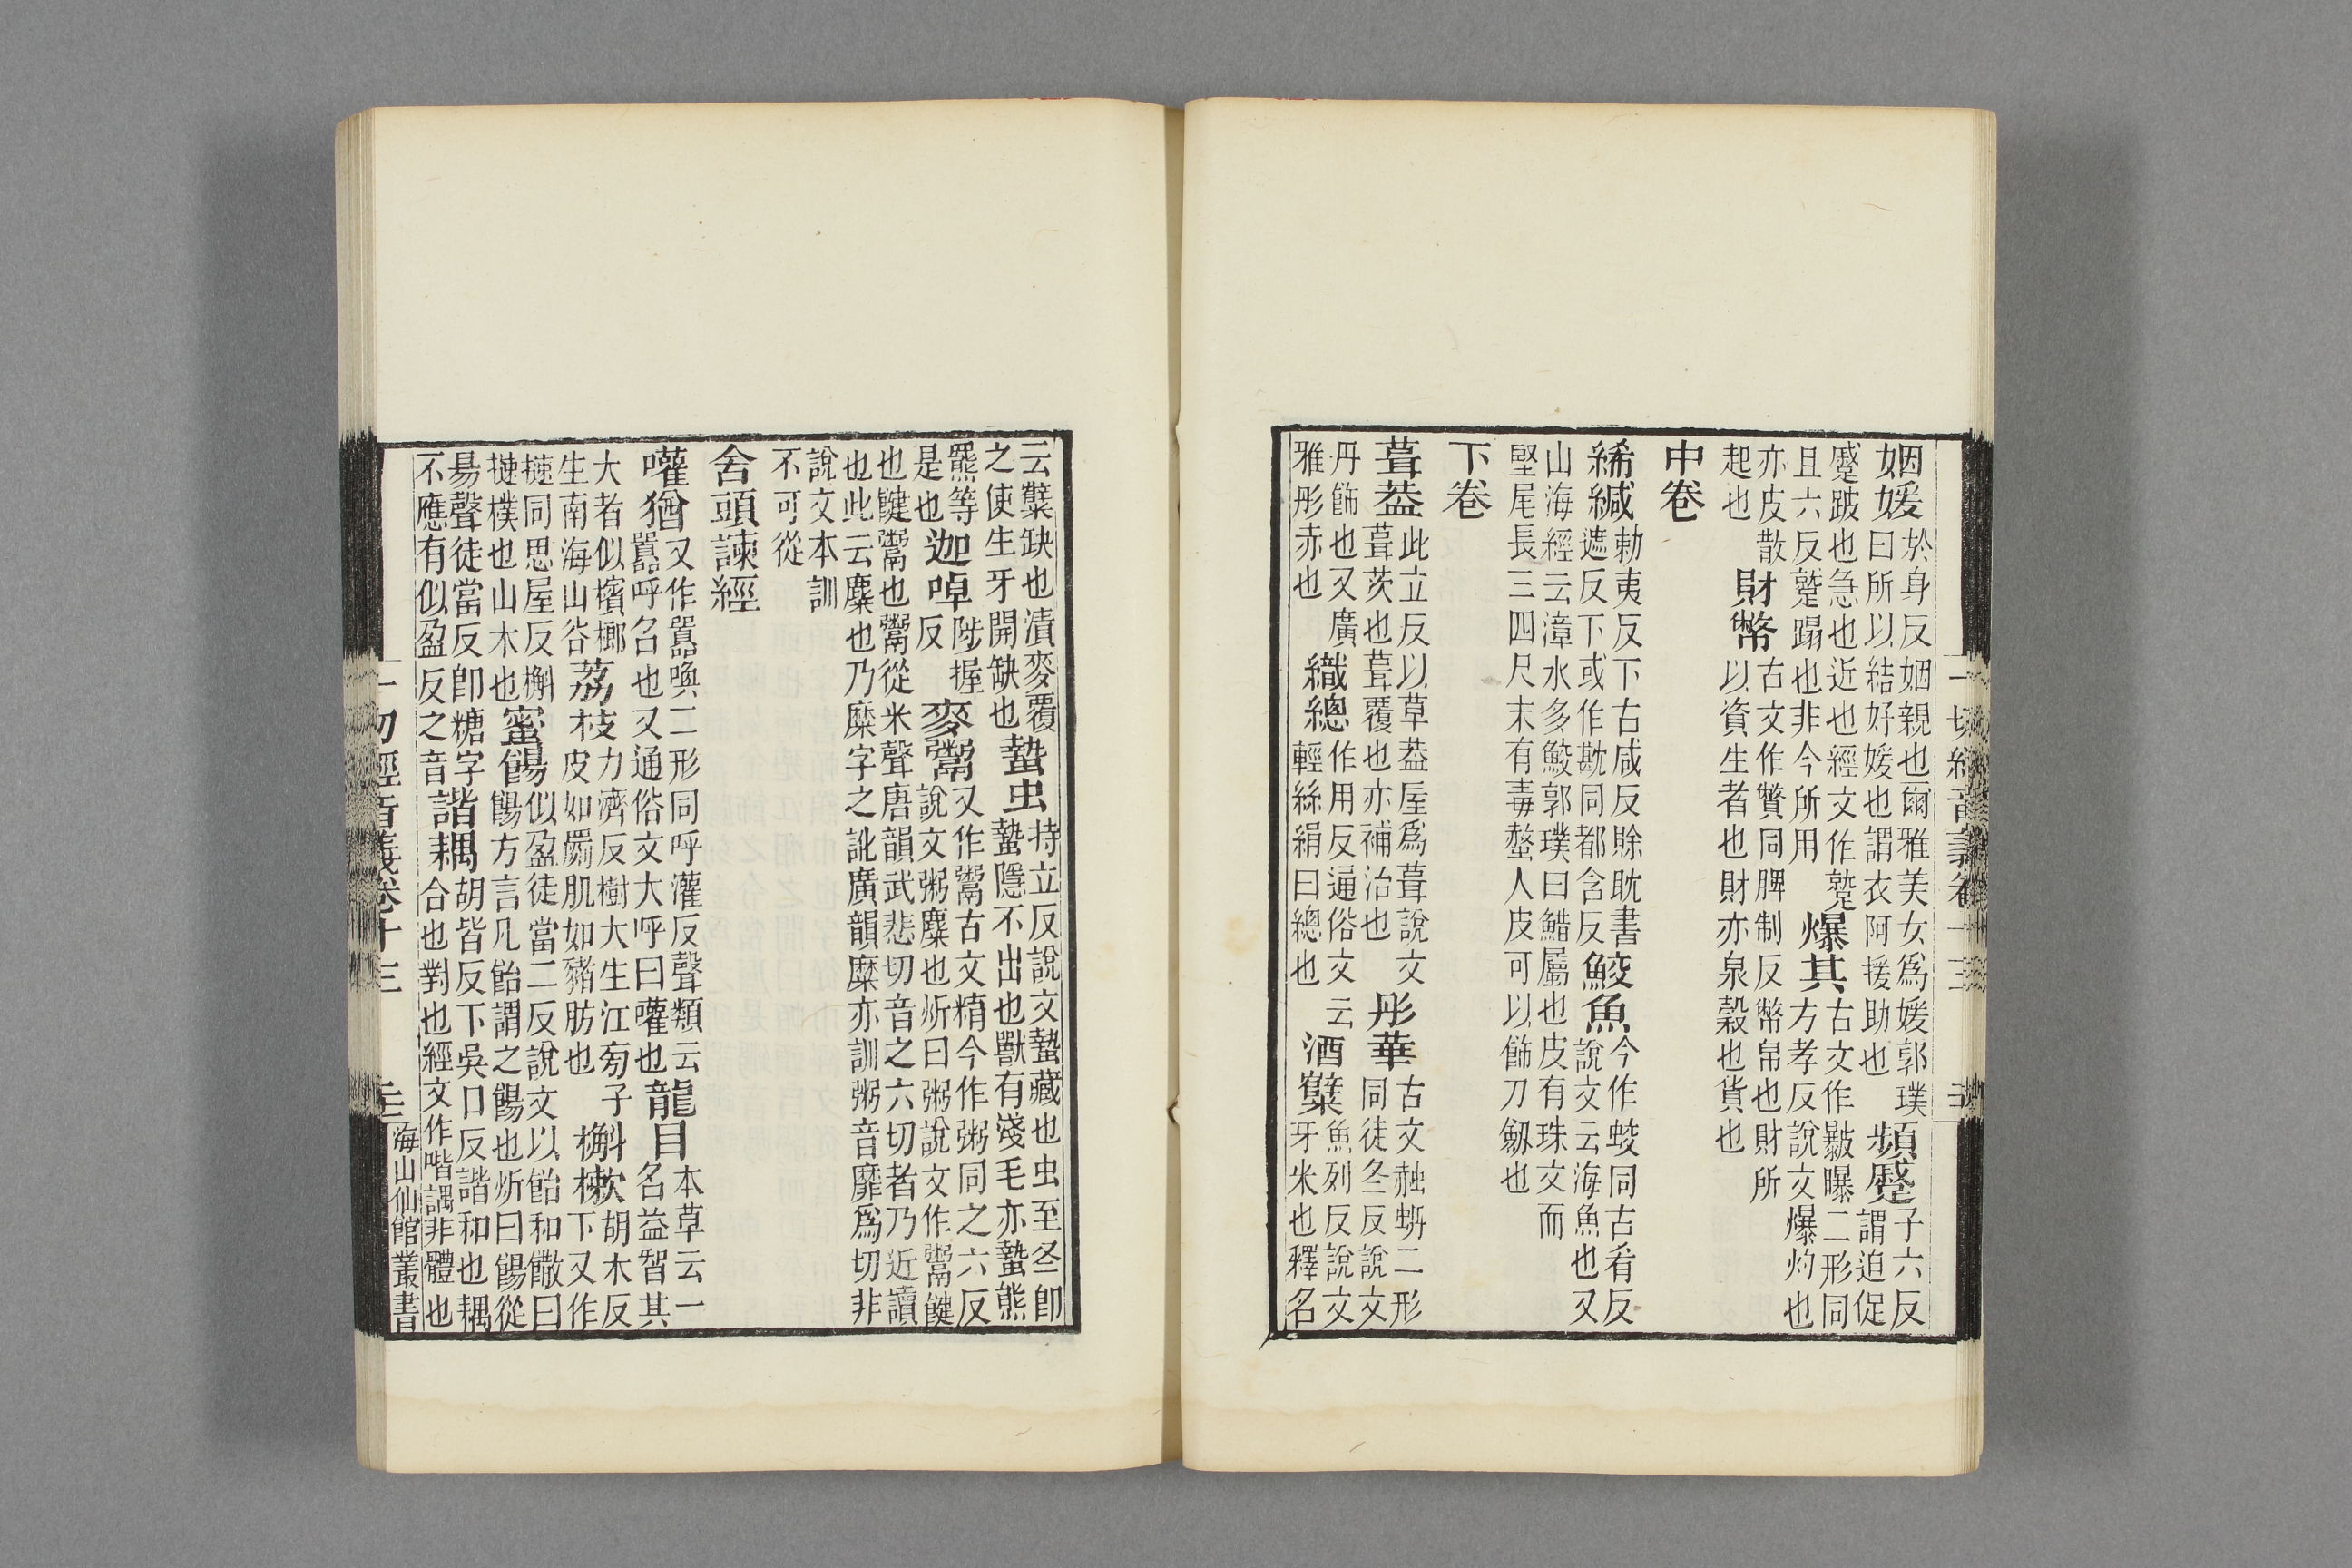 姻媛於身反姻親也爾雅美女爲媛郭璞曰所以結好媛也謂衣阿援助也頻蹙子六反謂迫促
蹙踧也急也近也經文作䠞且六反䠞蹋也非今所用爆其古文作曝二形同方孝反說文爆灼也
亦皮散起也財幣古文作贅同脾制反幣帛也財所以資生者也財亦泉穀也貨也
中卷
絺緘勅夷反下古咸反賖耽書遮反下或作勘同都含反鮫魚今作蛟同古肴反說文云海魚也又
山海經云漳水多鮫郭璞曰鯌屬也皮有珠文而
堅尾長三四尺末有毒螫人皮可以飾刀劔也
下卷
葺葢此立反以草葢屋爲葺說文葺茨也葺覆也亦補治也彤華古文赨蚒二形同徒冬反說文
丹飾也又廣雅彤赤也織總作用反通俗文云輕絲絹曰總也酒櫱魚列反說文牙米也釋名
一切經音義卷十三
云櫱缺也漬麥覆之使生牙開缺也蟄虫持立反說文蟄藏也虫至冬卽蟄隱不出也獸有淺毛亦蟄熊
羆等是也迦啅陟握反麥鬻又作鬻古文精今作粥同之六反說文粥麋也炘曰粥說文作鬻鍵
也鍵鬻也鬻從米聲唐韻武悲切音之六切者乃近讀
也此云麋也乃糜字之訛廣韻糜亦訓粥音靡爲切非
說文本訓
不可從
舍頭諫經
嚾猶又作嚻喚二形同呼灌反聲類云嚻呼召也又通俗文大呼曰嚾也龍目本草云一名益智其
大者似檳榔生南海山谷荔枝力濟反樹大生江匊子皮如罽肌如豬肪也槲樕胡木反下又作
樕同思屋反槲樕樸也山木也蜜餳似盈徒當二反說文以飴和饊曰餳方言凡飴謂之餳也炘曰餳從
昜聲徒當反卽糖字不應有似盈反之音諧耦胡皆反下吳口反諧和也耦合也對也經文作喈䚕非體也
一切經音義卷十三
海山仙館叢書